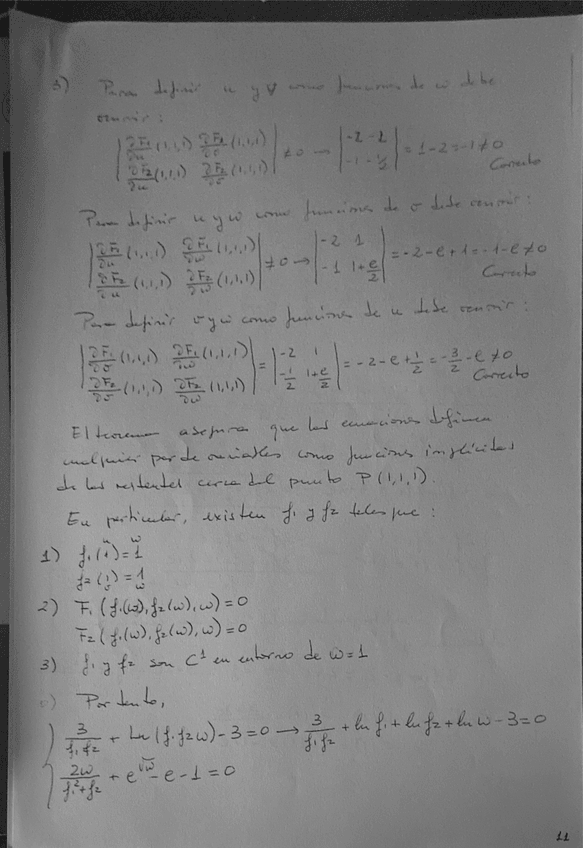 b) Para definir u y v como funciones de ω debe
ocurrir:
|∂F₁/∂u (1,1,1) ∂F₁/∂v (1,1,1); ∂F₂/∂u (1,1,1) ∂F₂/∂v (1,1,1)| ≠0 → |-2 -2; -1 -1/2| = 1-2=-1≠0
Correcto
Para definir u y ω como funciones de v debe ocurrir:
|∂F₁/∂u (1,1,1) ∂F₁/∂ω (1,1,1); ∂F₂/∂u (1,1,1) ∂F₂/∂ω (1,1,1)| ≠0 → |-2 1; -1 1+e/2| = -2-e+1=-1-e≠0
Correcto
Para definir v y ω como funciones de u debe ocurrir:
|∂F₁/∂v (1,1,1) ∂F₁/∂ω (1,1,1); ∂F₂/∂v (1,1,1) ∂F₂/∂ω (1,1,1)| = |-2 1; -1/2 1+e/2| = -2-e+1/2 = -3/2-e≠0
Correcto
El teorema asegura que las ecuaciones definen
cualquier par de variables como funciones implícitas
de las restantes cerca del punto P(1,1,1).
En particular, existen f₁ y f₂ tales que:
u ω
1) f₁(1)=1
f₂(1)=1
v ω
2) F₁(f₁(ω), f₂(ω), ω)=0
F₂(f₁(ω), f₂(ω), ω)=0
3) f₁ y f₂ son C¹ en entorno de ω=1
c) Por tanto,
3/(f₁f₂) + ln(f₁f₂ω)-3=0 → 3/(f₁f₂) + ln f₁ + ln f₂ + ln ω - 3=0
2ω/(f₁²+f₂) + e^√ω - e - 1 = 0
11